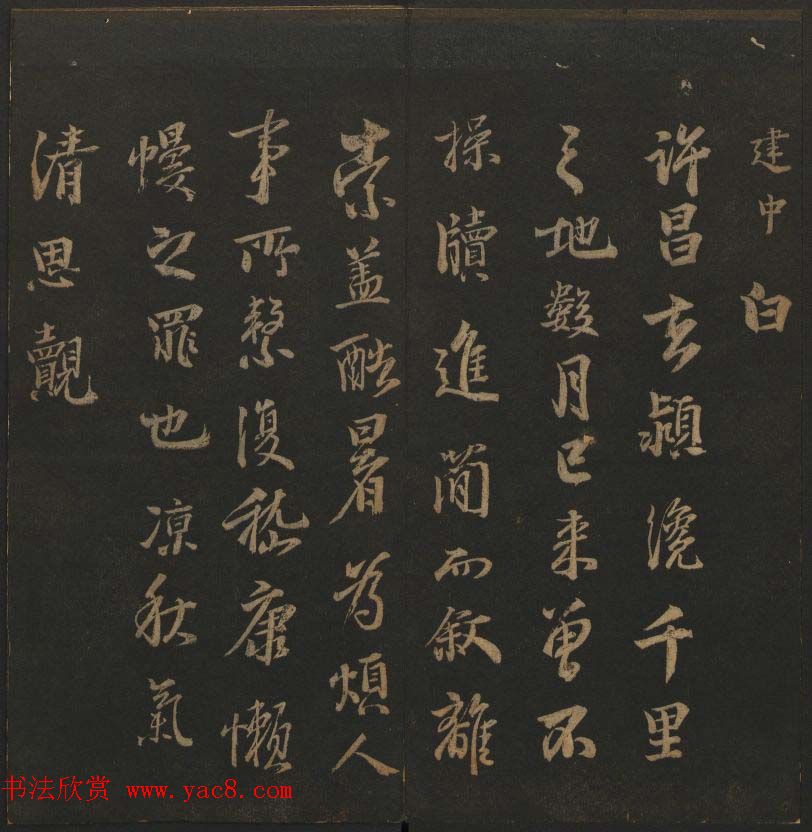 建中白
許昌去潁纔千里
之地數月已来曽不
操牘進簡而敘離
索盖酷暑為煩人
事所繫復嵇康懶
慢之罪也凉秋氣
清思覿
书法欣赏 www.yac8.com